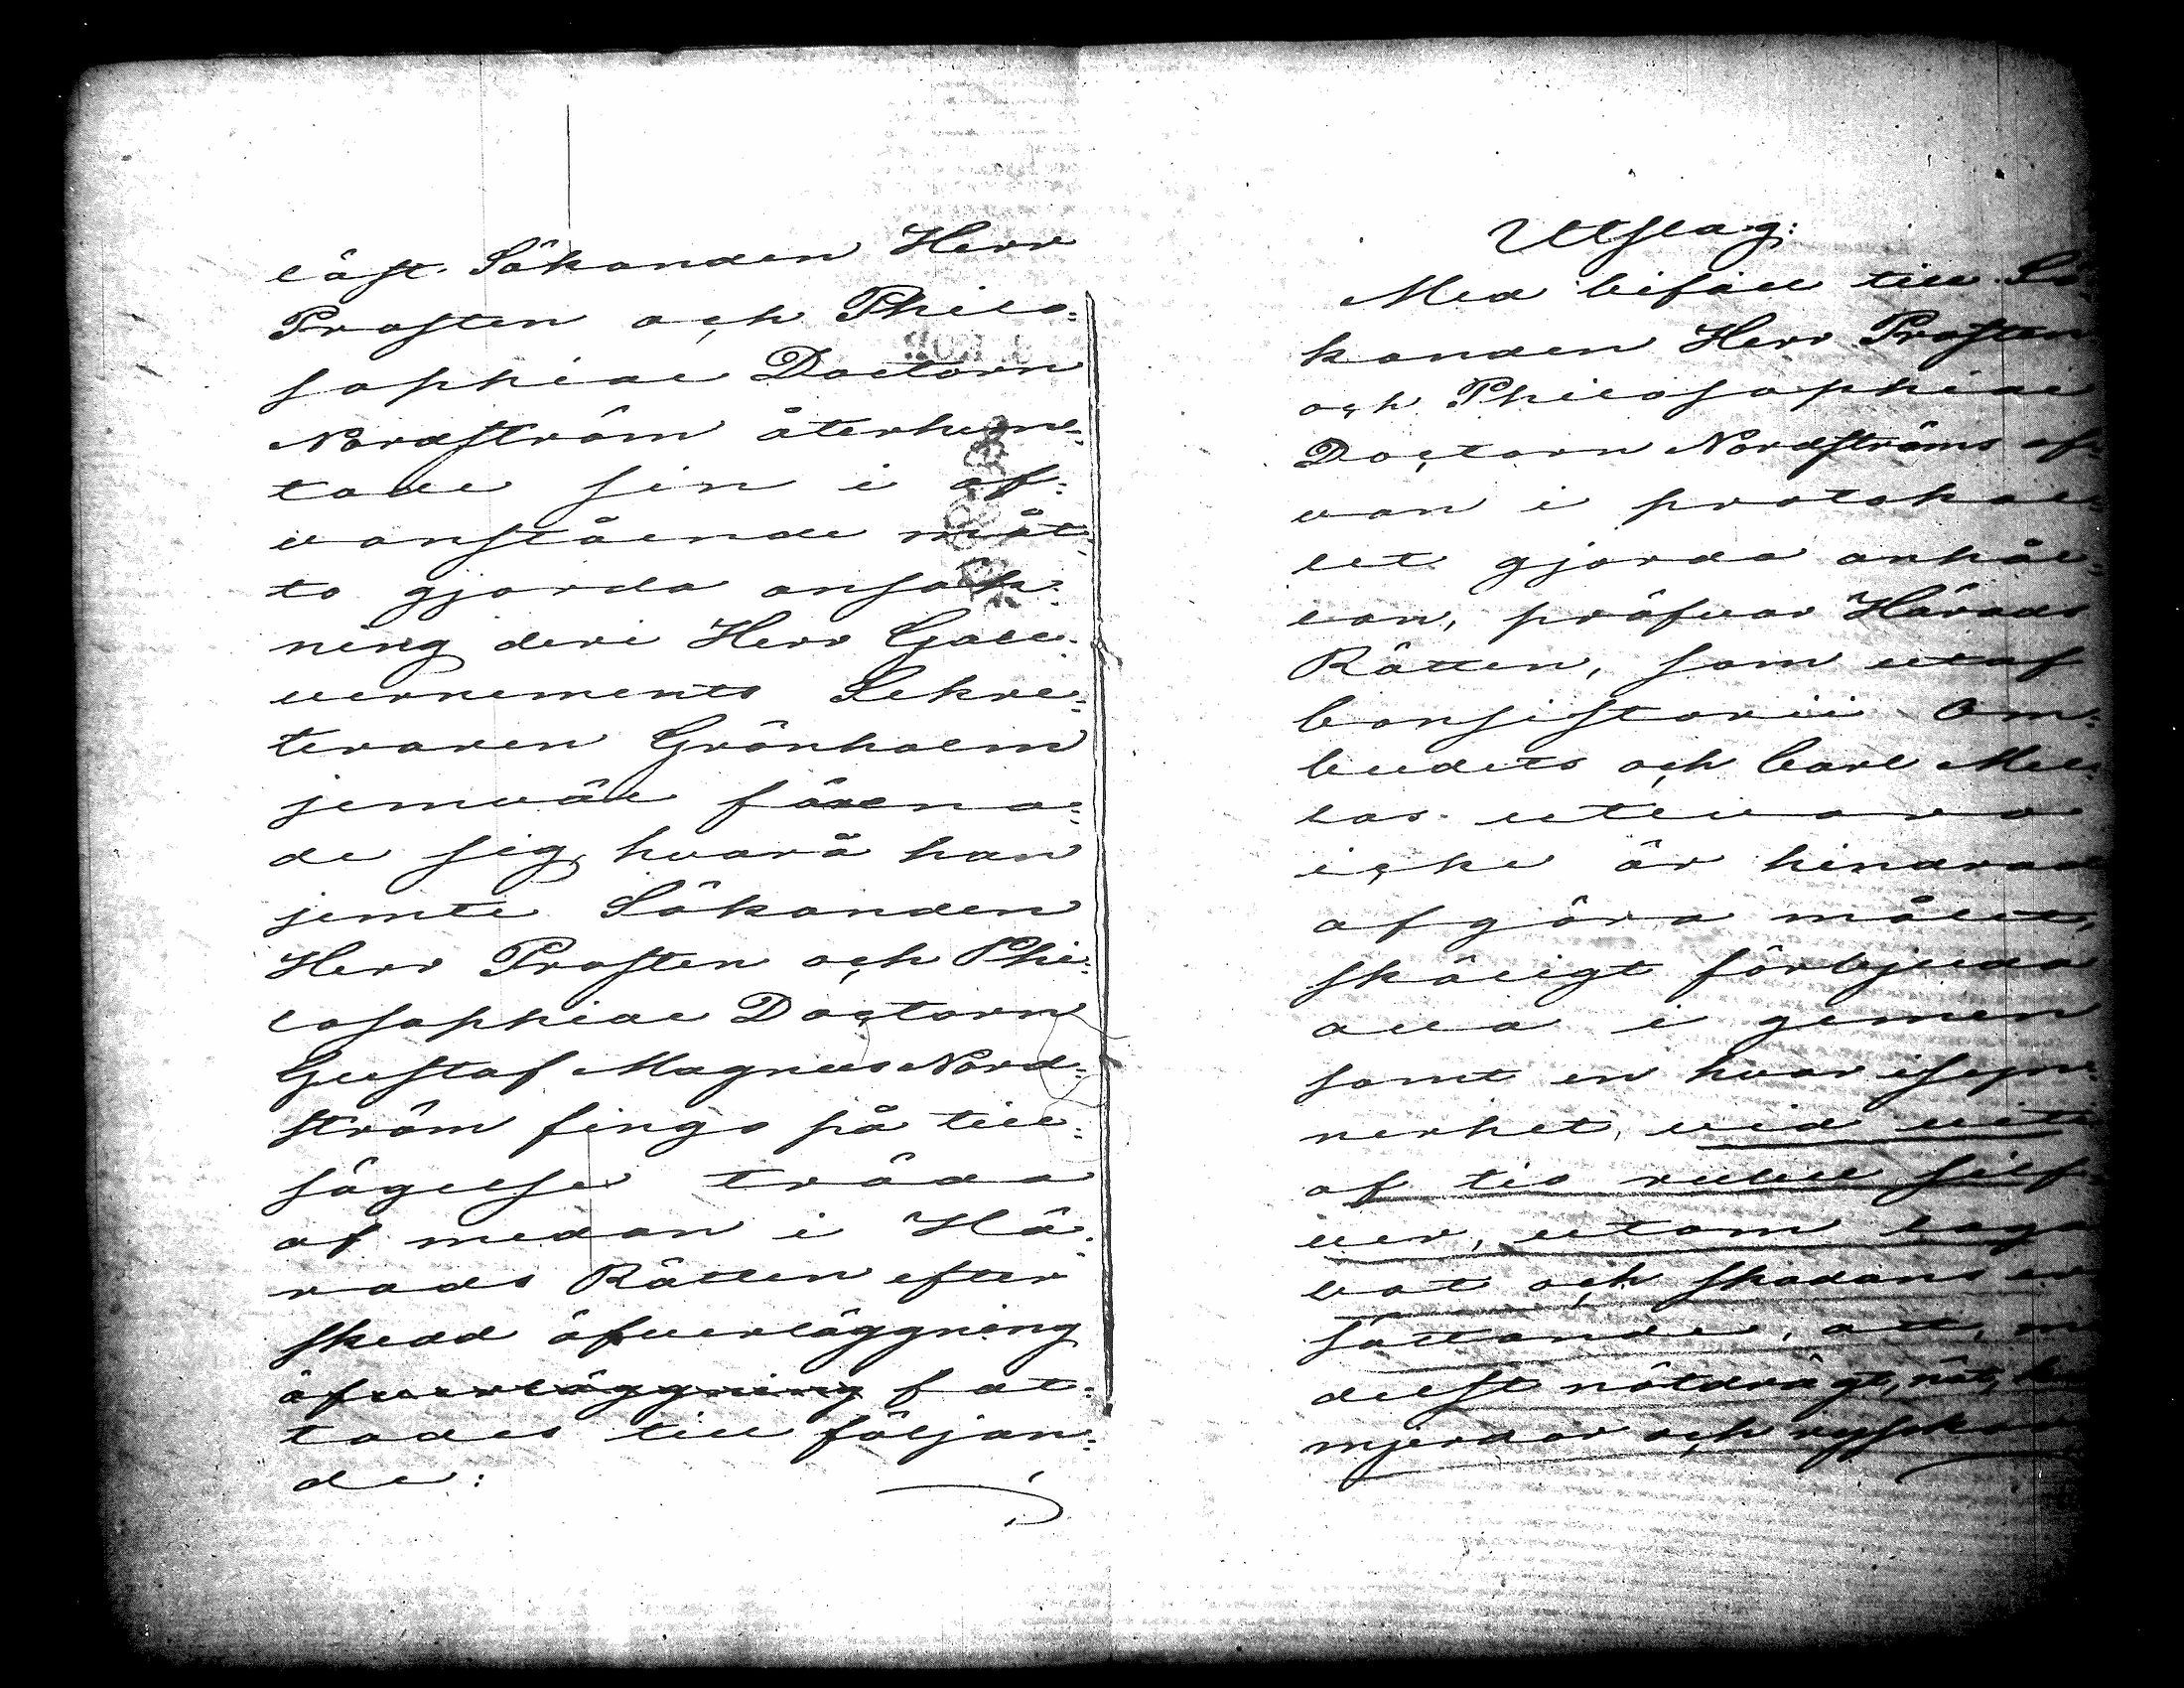 läst. Sökanden Herr
Prosten och Philo-
sophiae Doctorn
Nordström återhem-
tade sin i of-
vanstående måt-
to gjorda ansök-
ning deri Herr Gou-
vernements Sekre-
teraren Grönholm
jemväl förena-
de sig, hvarå han
jemte Sökanden
Herr Prosten och Phi-
losophiae Doctorn
Gustaf Magnus Nord-
ström fingo på till-
sägelse träda
af medan i Hä-
rads Rätten efter
skedd öfverläggning
öfverläggning fat-
tades till följan-
de:
Utslag:
Med bifall till Sö-
kanden Herr Prosten
och Philosophiae
Doctorn Nordströms of-
van i protokol-
let gjorda anhål-
lan, pröfvar Härads
Rätten, som utaf
Consistorii Om-
budets och Carl Mel-
las utevaro
icke är hindrad
afgöra målet,
skäligt förbjuda
alla i gemen
samt en hvar isyn-
nerhet, vid vite
af tio rubel silf-
ver, utom laga
bot och skadans er-
sättande, att, me-
delst nötdrägt, nät,
mjerdar och rysskor